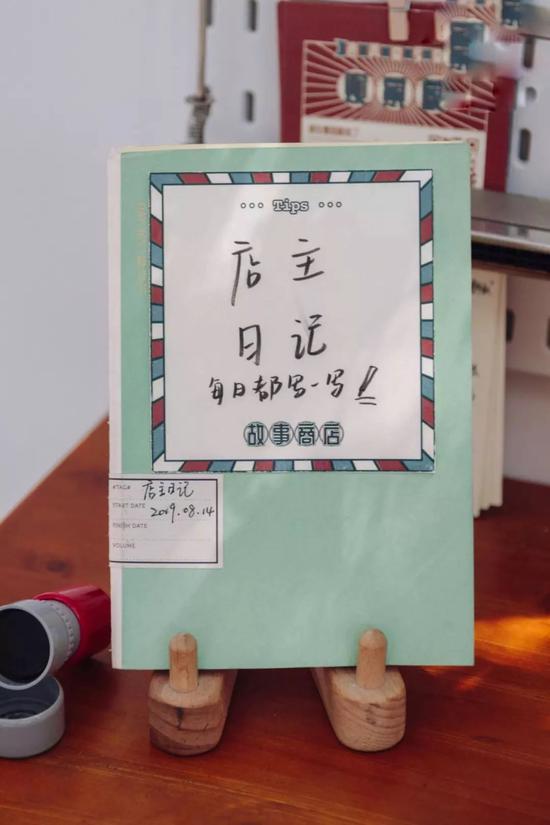 ••• Tips •••
店主
日记
每日都写一写！
故事商店
#TAG# 店主日记
START DATE 2019.08.14
FINISH DATE
VOLUME